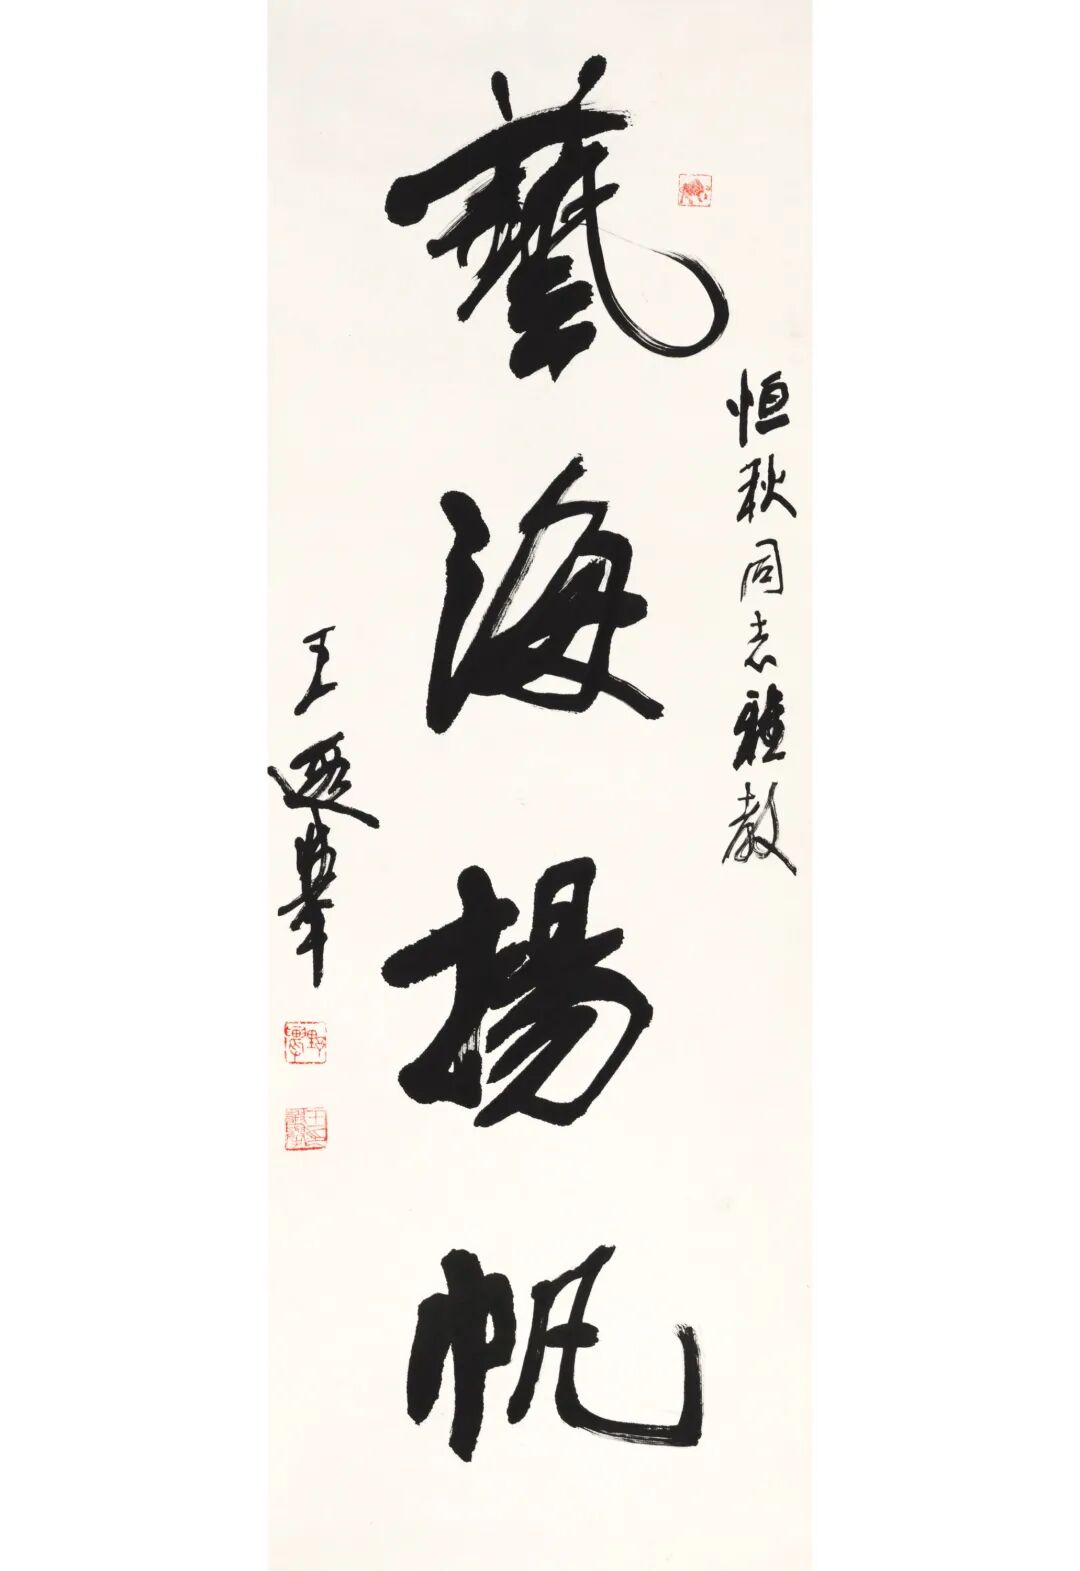 恒秋同志雅教
藝海揚帆
王遐舉